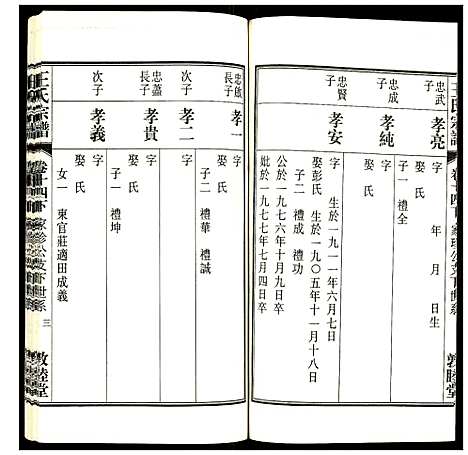 王氏宗譜
卷十四下
敦睦堂
忠武
子
孝亮
字
年 月 日生
娶 氏
子一 禮全
忠成
子
孝純
字
娶 氏
忠賢
子
孝安
字
生於一九一一年六月七日
娶彭氏 生於一九〇五年十一月十八日
子二 禮成 禮功
公於一九七六年十月九日卒
妣於一九七七年七月四日卒
忠啟
長子
孝一
字
娶 氏
子二 禮華 禮誠
次子
孝二
字
忠蓋
長子
孝貴
字
娶 氏
子一 禮坤
次子
孝義
字
娶 氏
女一 東官莊適田成義
王氏宗譜
卷十四下
三
敦睦堂